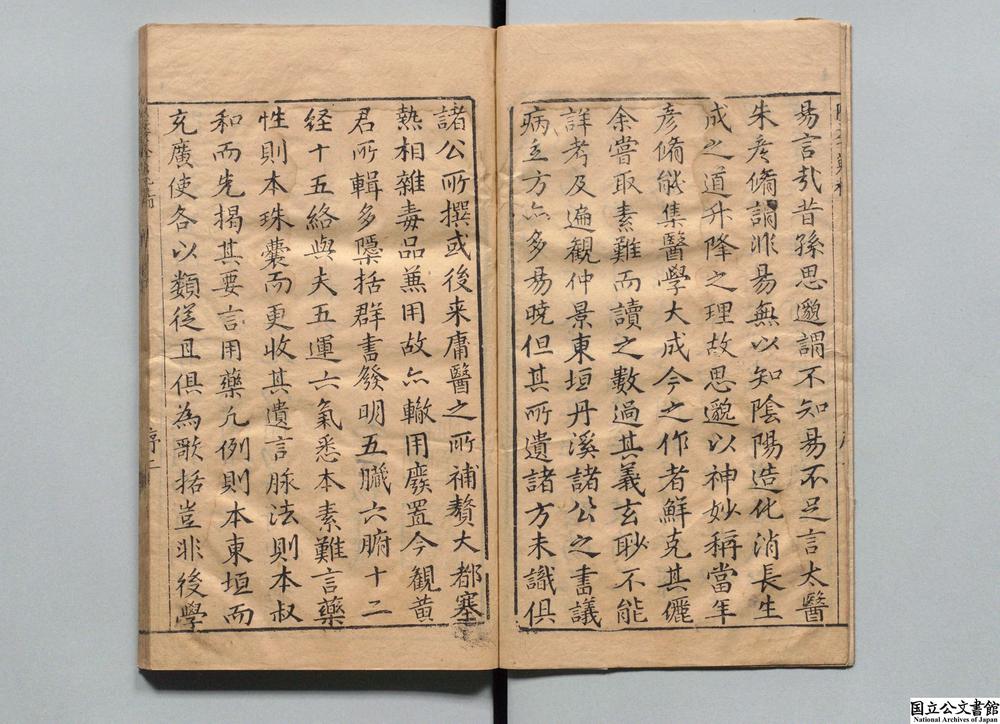 易言哉昔孫思邈謂不知易不足言太醫
朱彦脩謂非易無以知陰陽造化消長生
成之道升降之理故思邈以神妙稱當年
彦脩能集醫學大成今之作者鮮克其儷
余嘗取素難而讀之數過其義玄眇不能
詳考及遍觀仲景東垣丹溪諸公之書議
病立方亦多易暁但其所遺諸方未識俱
諸公所撰或後来庸醫之所補贅大都塞
熱相雜毒品兼用故亦輙用廢置今觀黄
君所輯多檃括群書發明五臓六腑十二
経十五絡與夫五運六氣悉本素難言藥
性則本珠囊而更收其遺言脉法則本叔
和而先揭其要言用藥凢例則本東垣而
充廣使各以類従且俱為歌括豈非後學
序二
国立公文書館
National Archives of Japan